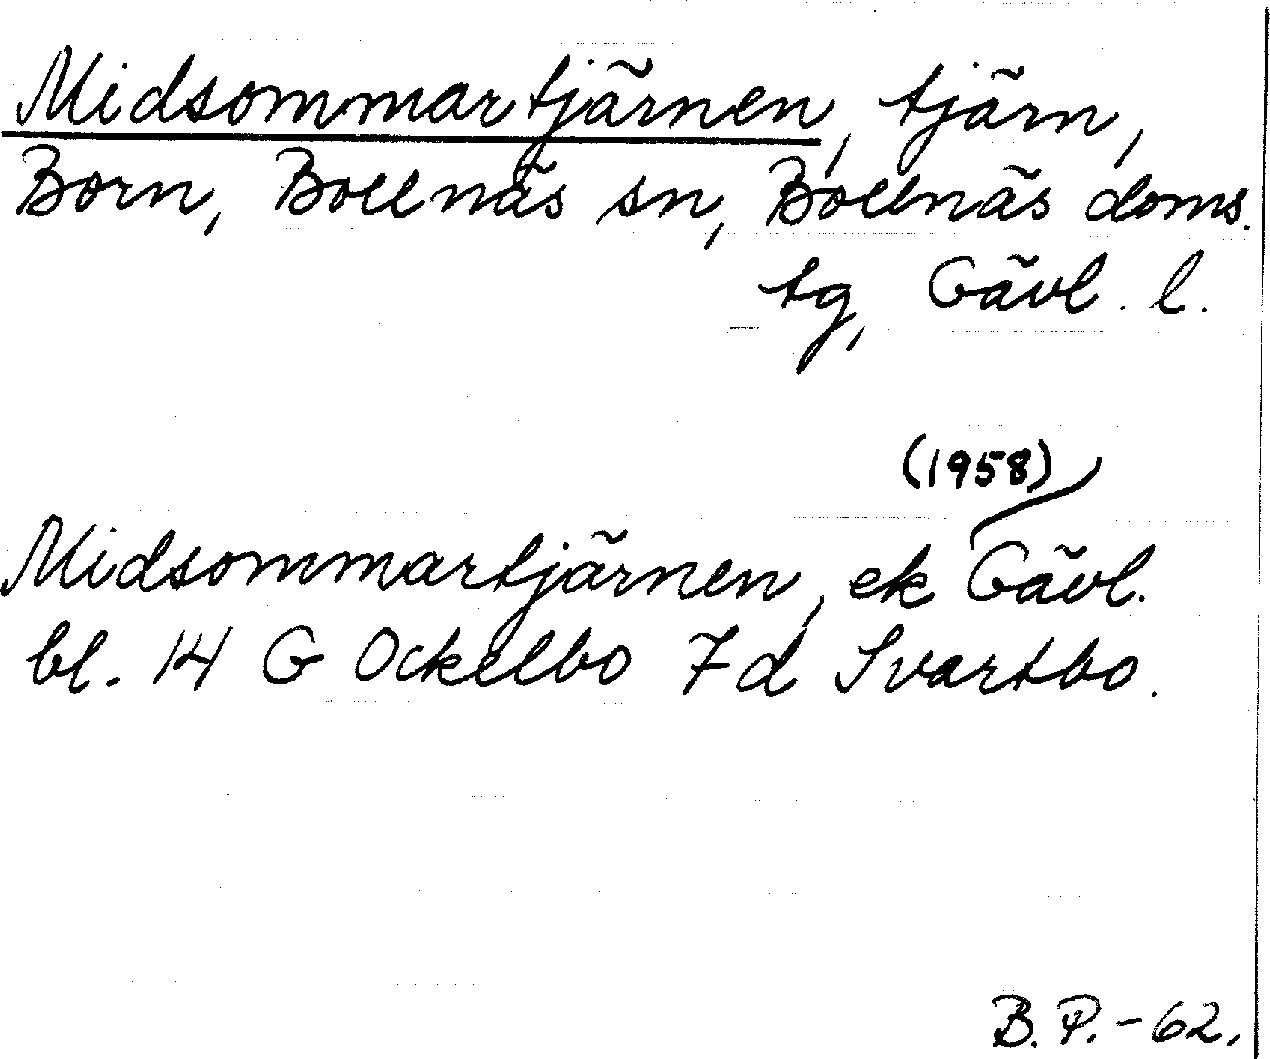 Midsommartjärnen, tjärn,
Born, Bollnäs sn, Bollnäs doms.
tg, Gävl. l.
(1958)
Midsommartjärnen, ek Gävl.
bl. 14 G Ockelbo 7d Svartbo.
B.P.-62.